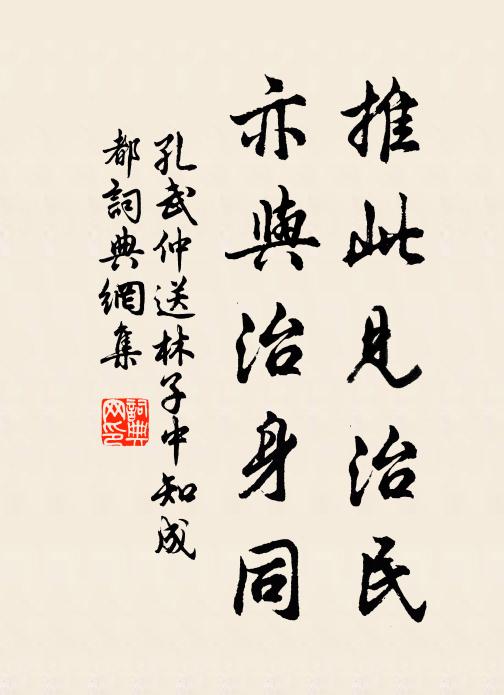 推此見治民
亦與治身同
孔武仲送林子中知成
都詞典網集
詞典
网印